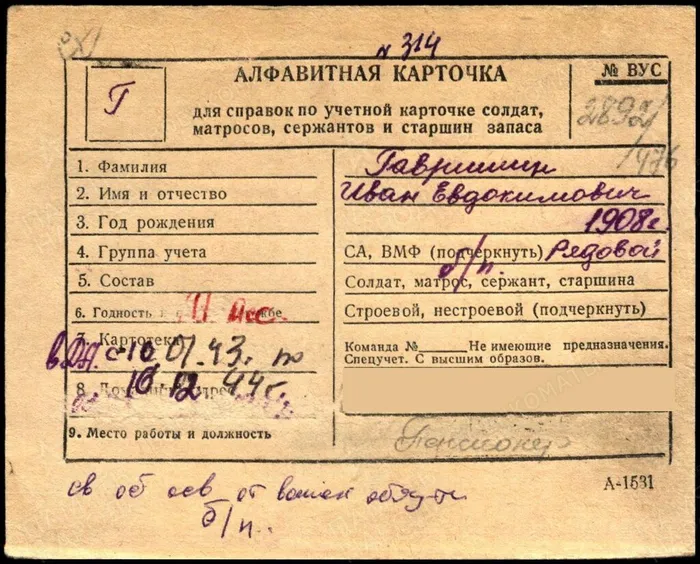 № 314
АЛФАВИТНАЯ КАРТОЧКА
№ ВУС
Г
для справок по учетной карточке солдат,
матросов, сержантов и старшин запаса
2892/
/476
1. Фамилия Гавришин
2. Имя и отчество Иван Евдокимович
3. Год рождения 1908 г.
4. Группа учета СА, ВМФ (подчеркнуть) Рядовой
5. Состав Солдат, матрос, сержант, старшина
б/п.
6. Годность Строевой, нестроевой (подчеркнуть)
7. Картотека Команда № Не имеющие предназначения.
Спецучет. С высшим образов.
с 10.01.43г. по
8.
10.12.44г.
9. Место работы и должность Пенсионер
св об осв от воинск
б/п.
А-1531